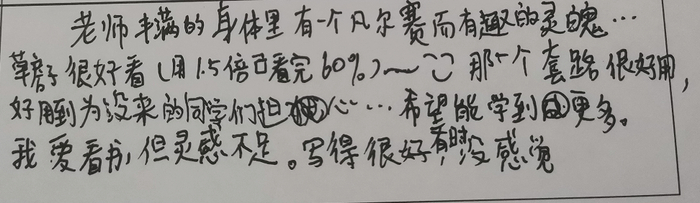 老师丰满的身体里有一个凡尔赛而有趣的灵魂…
章子很好看(用1.5倍可看完60%)～ 那5个套路很好用,
好用到为没来的同学们担心…希望能学到更多。
我爱看书,但灵感不足。写得很好,有时没感觉